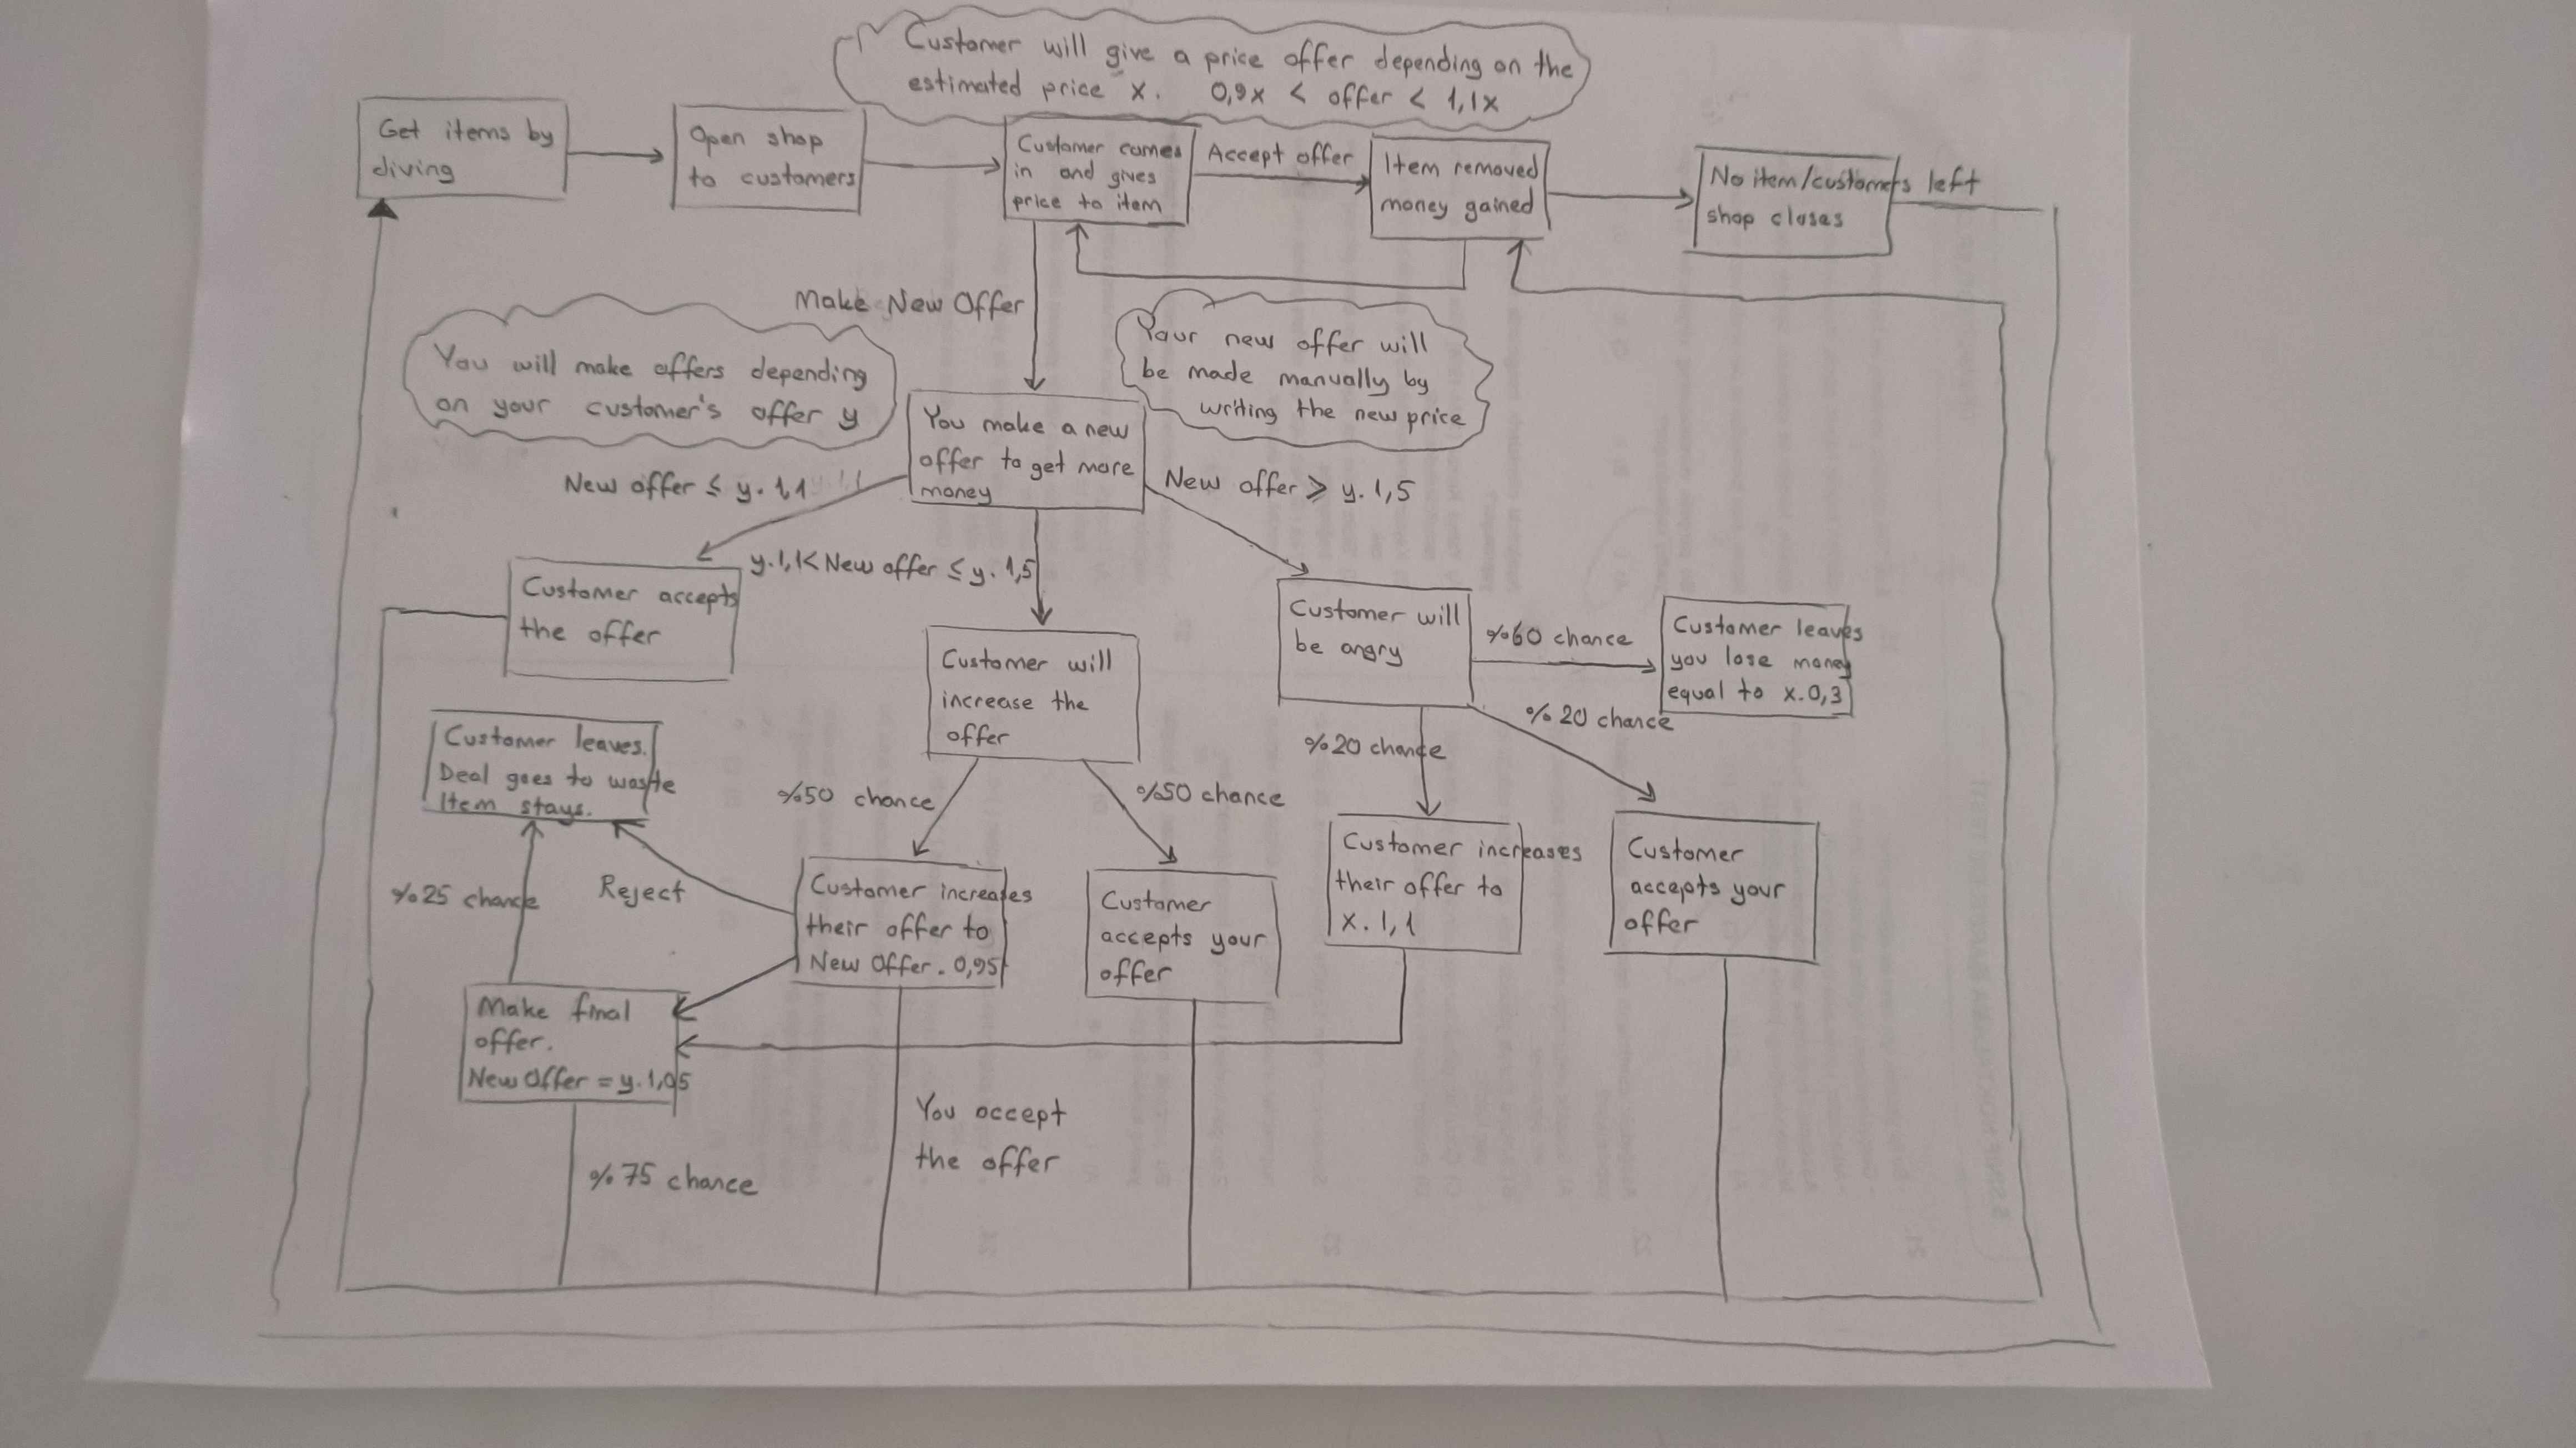 Customer will give a price offer depending on the
estimated price x. 0,9x < offer < 1,1x
Get items by
diving
Open shop
to customers
Customer comes
in and gives
price to item
Accept offer
Item removed
money gained
No item/customers left
shop closes
Make New Offer
You will make offers depending
on your customer's offer y
Your new offer will
be made manually by
writing the new price
You make a new
offer to get more
money
New offer ≤ y. 1,1
y.1,1< New offer ≤ y. 1,5
New offer ≥ y. 1,5
Customer accepts
the offer
Customer will
increase the
offer
Customer will
be angry
%60 chance
Customer leaves
you lose money
equal to x.0,3
%20 chance
%20 chance
Customer leaves.
Deal goes to waste
Item stays.
%50 chance
%50 chance
%25 chance
Reject
Customer increases
their offer to
New Offer. 0,95
Customer
accepts your
offer
Customer increases
their offer to
x. 1,1
Customer
accepts your
offer
Make final
offer.
New Offer = y.1,05
%75 chance
You accept
the offer